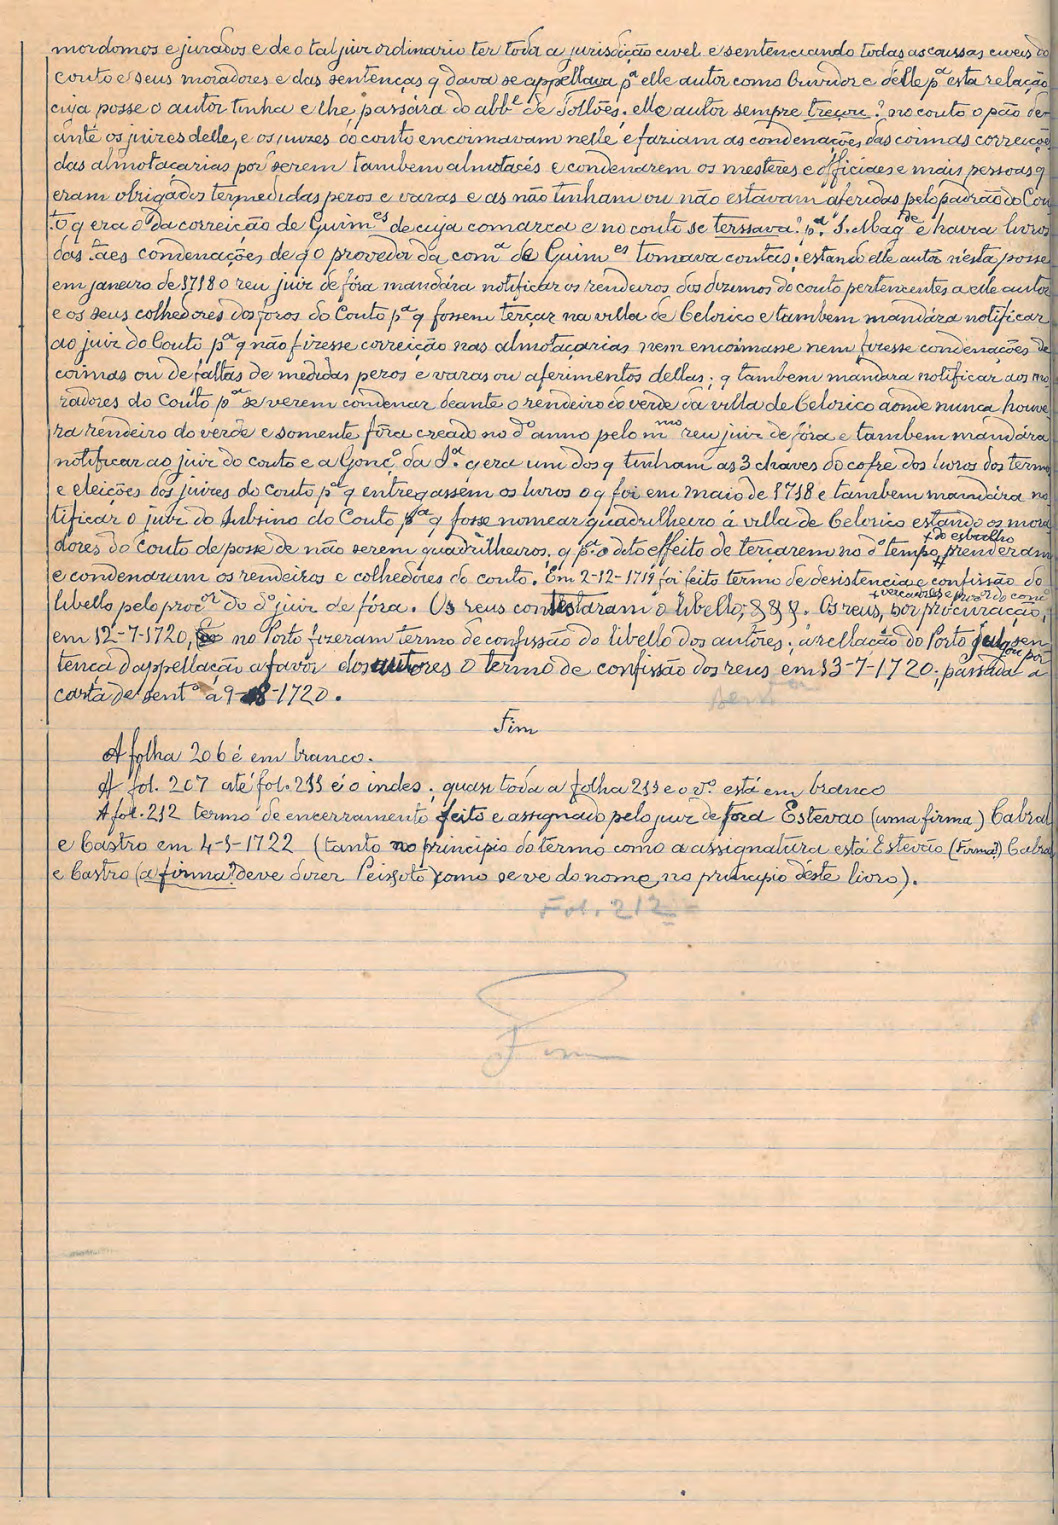 mordomos e jurados e de o tal juiz ordinario ter toda a jurisdicção civel e sentenciando todas as caussas civeis do
couto e seus moradores e das sentenças q dava se appellava pª elle autor como Ouvidor e delle pª esta relação
cuja posse o autor tinha e lhe passára do abbe de Tolões; elle autor sempre treçou? no couto o pão de-
ante os juizes delle, e os juizes do couto encoimavam nelle e faziam as condenações das coimas correições
das almotaçarias por serem tambem almotacés e condenarem os mesteres e officiaes e mais pessoas q
eram obrigados ter medidas pezos e varas e as não tinham ou não estavam aferidas pelo padrão do Cou
to q era o da correição de Guim.es de cuja comarca e no couto se terssava? pª S. Magde e havia livros
das taes condenações de q o provedor da comª de Guimes tomava contas; estando elle autor nésta posse
em janeiro de 1718 o reu juiz de fóra mandára notificar os rendeiros dos dizimos do couto pertencentes a elle autor
e os seus colhedores dos foros do Couto pª q fossem terçar na villa de Celorico e tambem mandára notificar
ao juiz do Couto pª q não fizesse correição nas almotaçarias nem encoimasse nem fizesse condenações de
coimas ou de faltas de medidas pezos e varas ou aferimentos dellas; q tambem mandára notificar aos mo
radores do Couto pª se verem condenar deante o rendeiro do verde da villa de Celorico aonde nunca houve
ra rendeiro do verde e somente fôra creado no dº anno pelo mmo reu juiz de fóra e tambem mandára
notificar ao juiz do couto e a Gonçº da Sª q era um dos q tinham as 3 chaves do cofre dos livros dos termos
e eleições dos juizes do Couto pª q entregassem os livros o q foi em maio de 1718 e tambem mandára no
tificar o juiz do Subsino do Couto pª q fosse nomear quadrilheiro á villa de Celorico estando os mora
+ do esbulho
dores do Couto de posse de não serem quadrilheiros; q pª o dito effeito de terçarem no dº tempo + prenderam
e condenarum os rendeiros e colhedores do couto. Em 2-12-1719 foi feito termo de desistencia e confissão do
+ vereadores e procor do conc.º
libello pelo procor do dº juiz de fóra. Os reus contestaram o libello, &&&. Os reus, por procuração,
em 12-7-1720, no Porto fizeram termo de confissão do libello dos autores; a rellação do Porto julgou por sen-
tença d'appellação a favor dos autores o termo de confissão dos reus em 13-7-1720; passada a
carta de sentª a 9-8-1720.
sentª
Fim
A folha 206 é em branco.
A fol. 207 até fol. 211 é o index; quasi toda a folha 211 e o vº está em branco
A fol. 212 termo de encerramento feito e assignado pelo juiz de fora Estevão (uma firma) Cabral
e Castro em 4-5-1722 (tanto no principio do termo como a assignatura está Estevão (Firma?) Cabral
e Castro (a firma? deve dizer Peixoto) como se ve do nome no principio déste livro).
Fol. 212
Fim